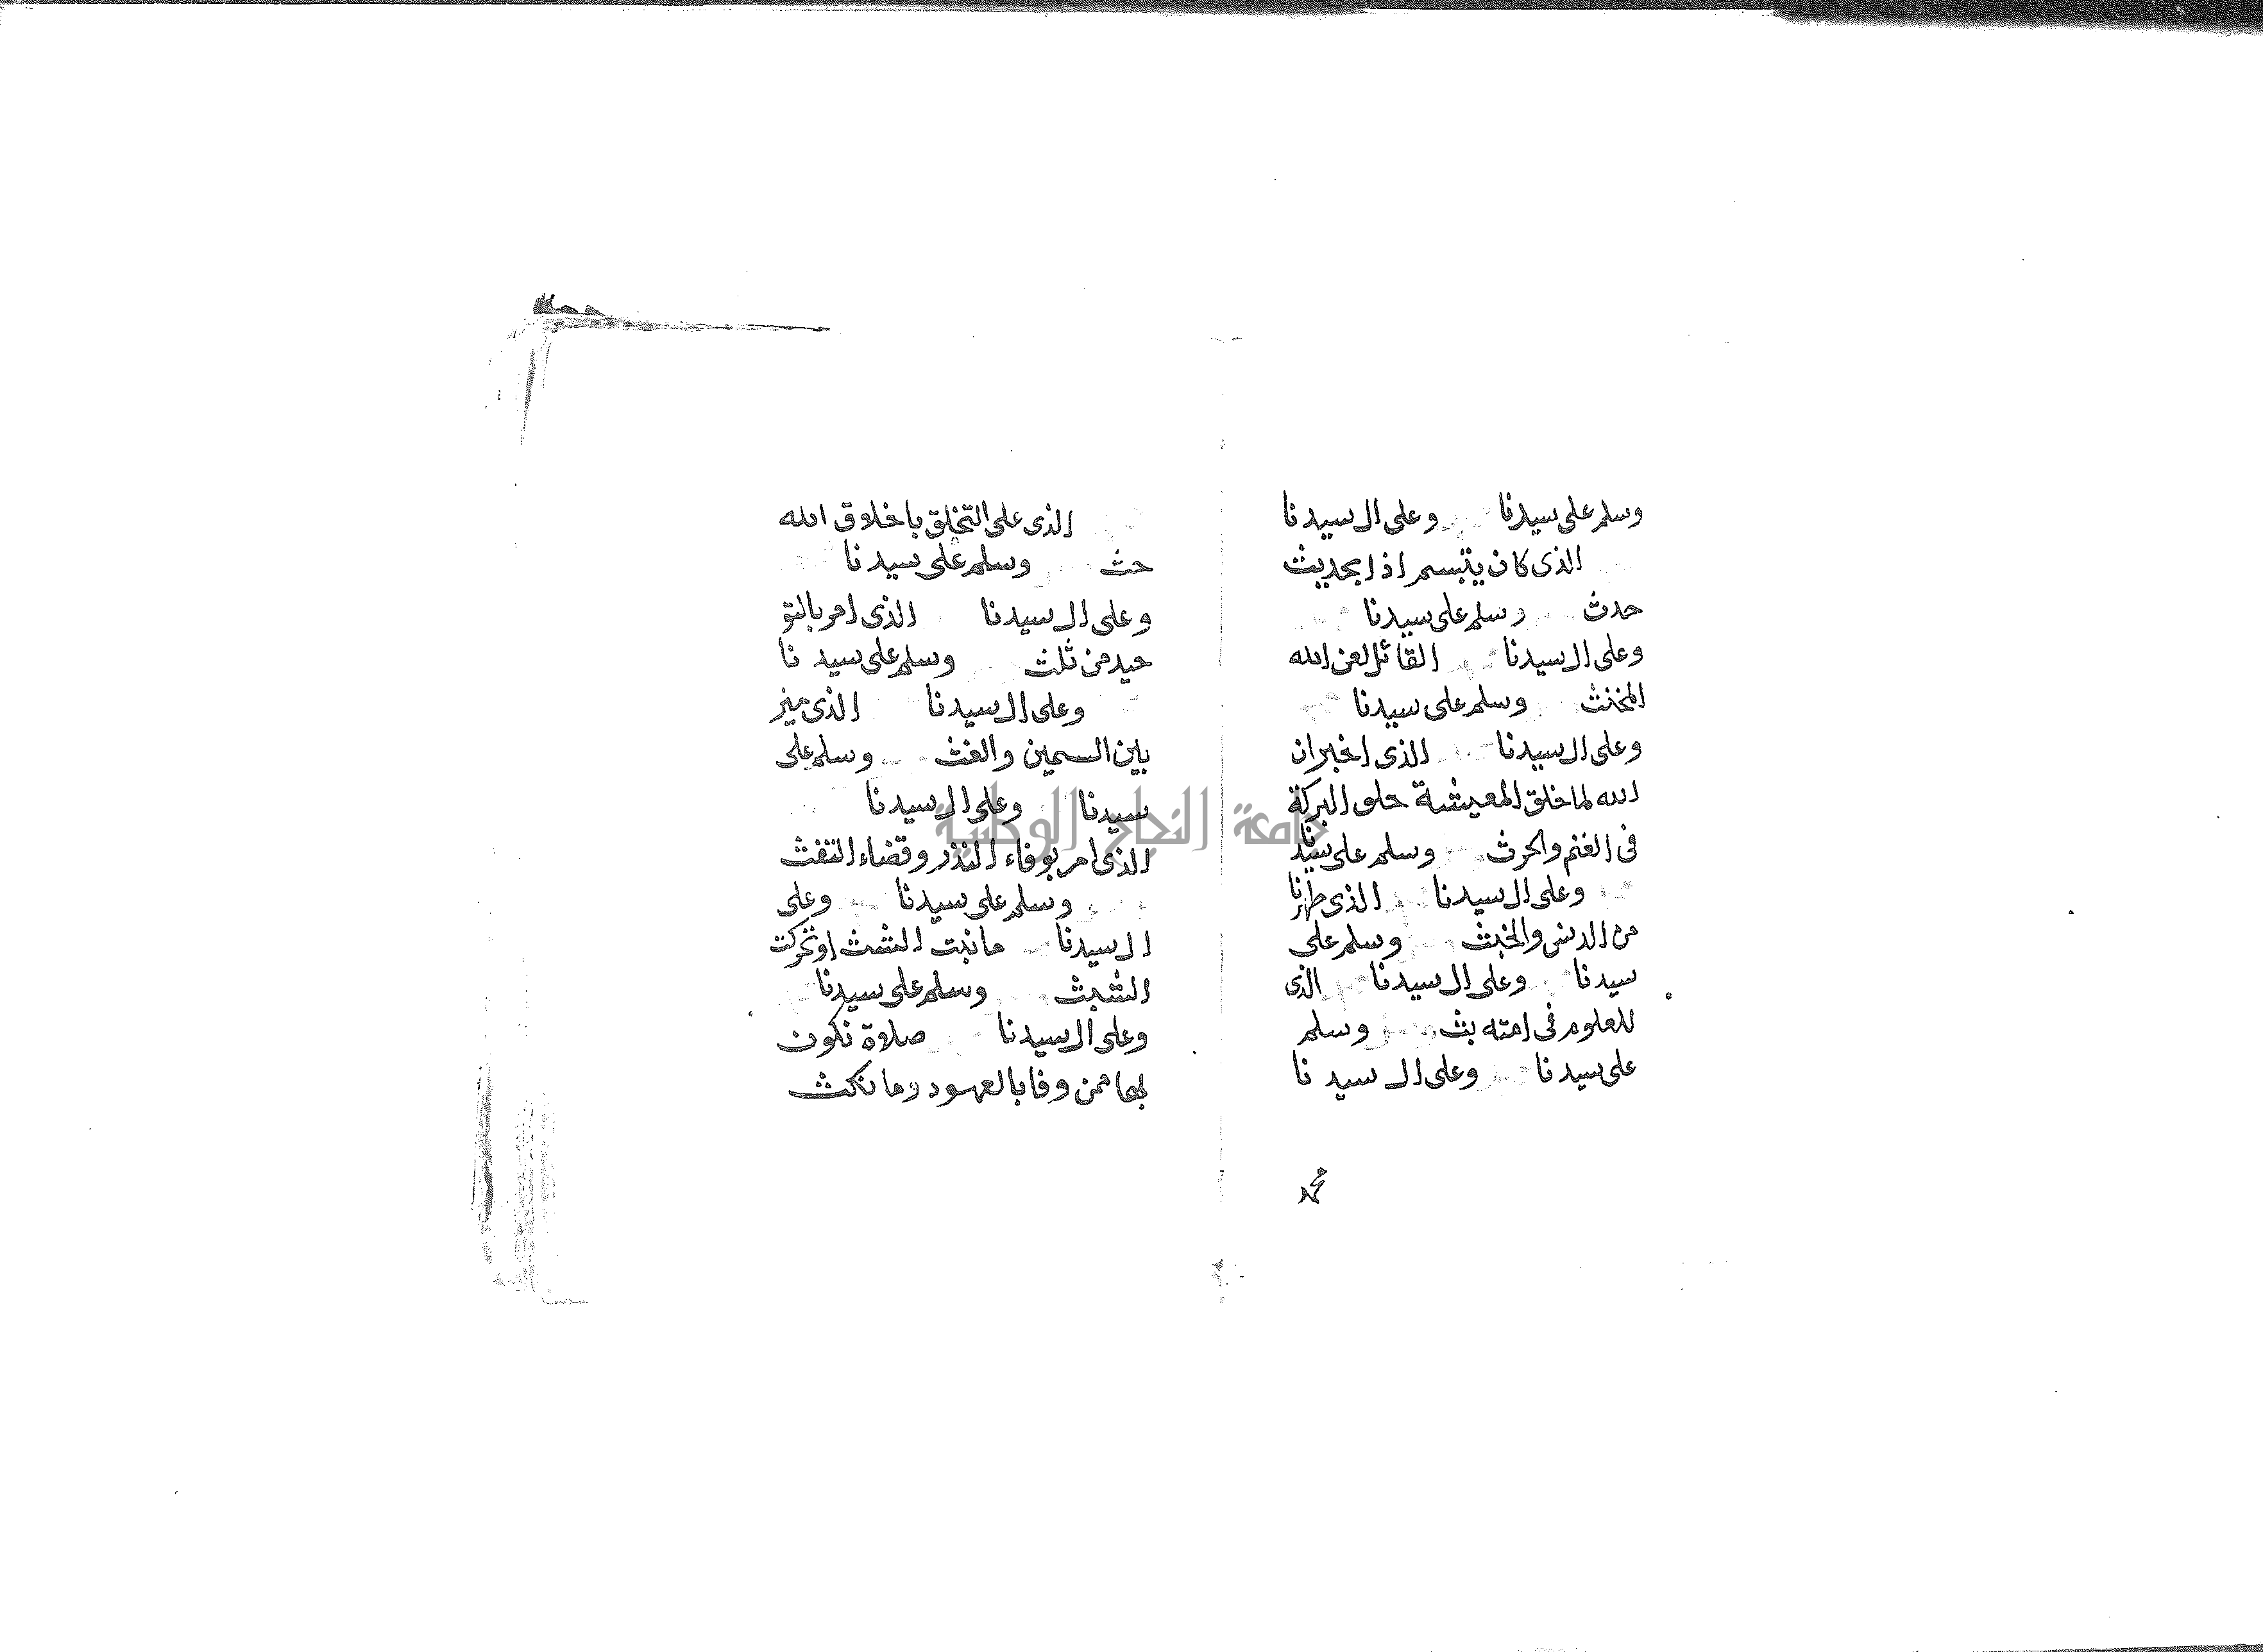 وسلم على سيدنا وعلى ال سيدنا
الذى كان يتبسم اذا بحديث
حدث وسلم على سيدنا
وعلى ال سيدنا القائل لعن الله
المخنث وسلم على سيدنا
وعلى ال سيدنا الذى اخبر ان
الله لما خلق المعيشة جعل البركة
فى الغنم والحرث وسلم على سيدنا
وعلى ال سيدنا الذى طهرنا
من الدنس والخبث وسلم على
سيدنا وعلى ال سيدنا الذى
للعلوم فى امته بث وسلم
على سيدنا وعلى ال سيدنا
محمد
الذى على التخلق باخلاق الله
حث وسلم على سيدنا
وعلى ال سيدنا الذى امر بالتو
حيد من ثلث وسلم على سيدنا
وعلى ال سيدنا الذى ميز
بين السمين والغث وسلم على
سيدنا وعلى ال سيدنا
الذى امر بوفاء النذر وقضاء التفث
وسلم على سيدنا وعلى
ال سيدنا ما نبت الشث او تحركت
الشبث وسلم على سيدنا
وعلى ال سيدنا صلاة نكون
بها ممن وفا بالعهود وما نكث
جامعة النجاح الوطنية